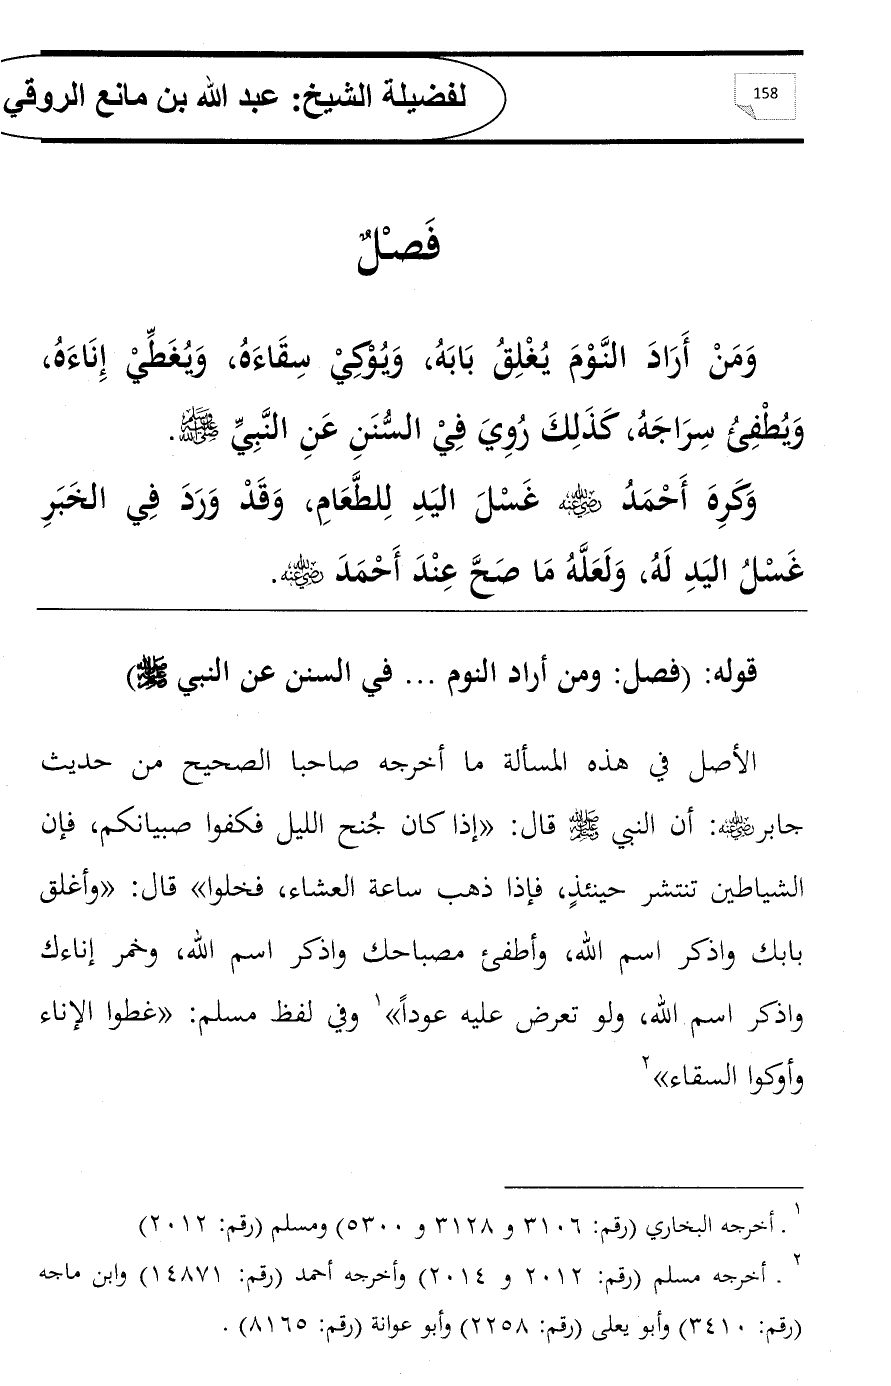 158
لفضيلة الشيخ: عبد الله بن مانع الروقي
فَصْلٌ
وَمَنْ أَرَادَ النَّوْمَ يُغْلِقُ بَابَهُ، وَيُوْكِيْ سِقَاءَهُ، وَيُغَطِّيْ إِنَاءَهُ،
وَيُطْفِئُ سِرَاجَهُ، كَذَلِكَ رُوِيَ فِيْ السُّنَنِ عَنِ النَّبِيِّ ﷺ.
وَكَرِهَ أَحْمَدُ رضي الله عنه غَسْلَ اليَدِ لِلطَّعَامِ، وَقَدْ وَرَدَ فِي الخَبَرِ
غَسْلُ اليَدِ لَهُ، وَلَعَلَّهُ مَا صَحَّ عِنْدَ أَحْمَدَ رضي الله عنه.
قوله: (فصل: ومن أراد النوم ... في السنن عن النبي ﷺ)
الأصل في هذه المسألة ما أخرجه صاحبا الصحيح من حديث
جابر رضي الله عنه: أن النبي ﷺ قال: «إذا كان جُنح الليل فكفوا صبيانكم، فإن
الشياطين تنتشر حينئذٍ، فإذا ذهب ساعة العشاء، فخلوا» قال: «وأغلق
بابك واذكر اسم الله، وأطفئ مصباحك واذكر اسم الله، وخمر إناءك
واذكر اسم الله، ولو تعرض عليه عوداً»١ وفي لفظ مسلم: «غطوا الإناء
وأوكوا السقاء»٢
١ . أخرجه البخاري (رقم: ٣١٠٦ و ٣١٢٨ و ٥٣٠٠) ومسلم (رقم: ٢٠١٢)
٢ . أخرجه مسلم (رقم: ٢٠١٢ و ٢٠١٤) وأخرجه أحمد (رقم: ١٤٨٧١) وابن ماجه
(رقم: ٣٤١٠) وأبو يعلى (رقم: ٢٢٥٨) وأبو عوانة (رقم: ٨١٦٥) .